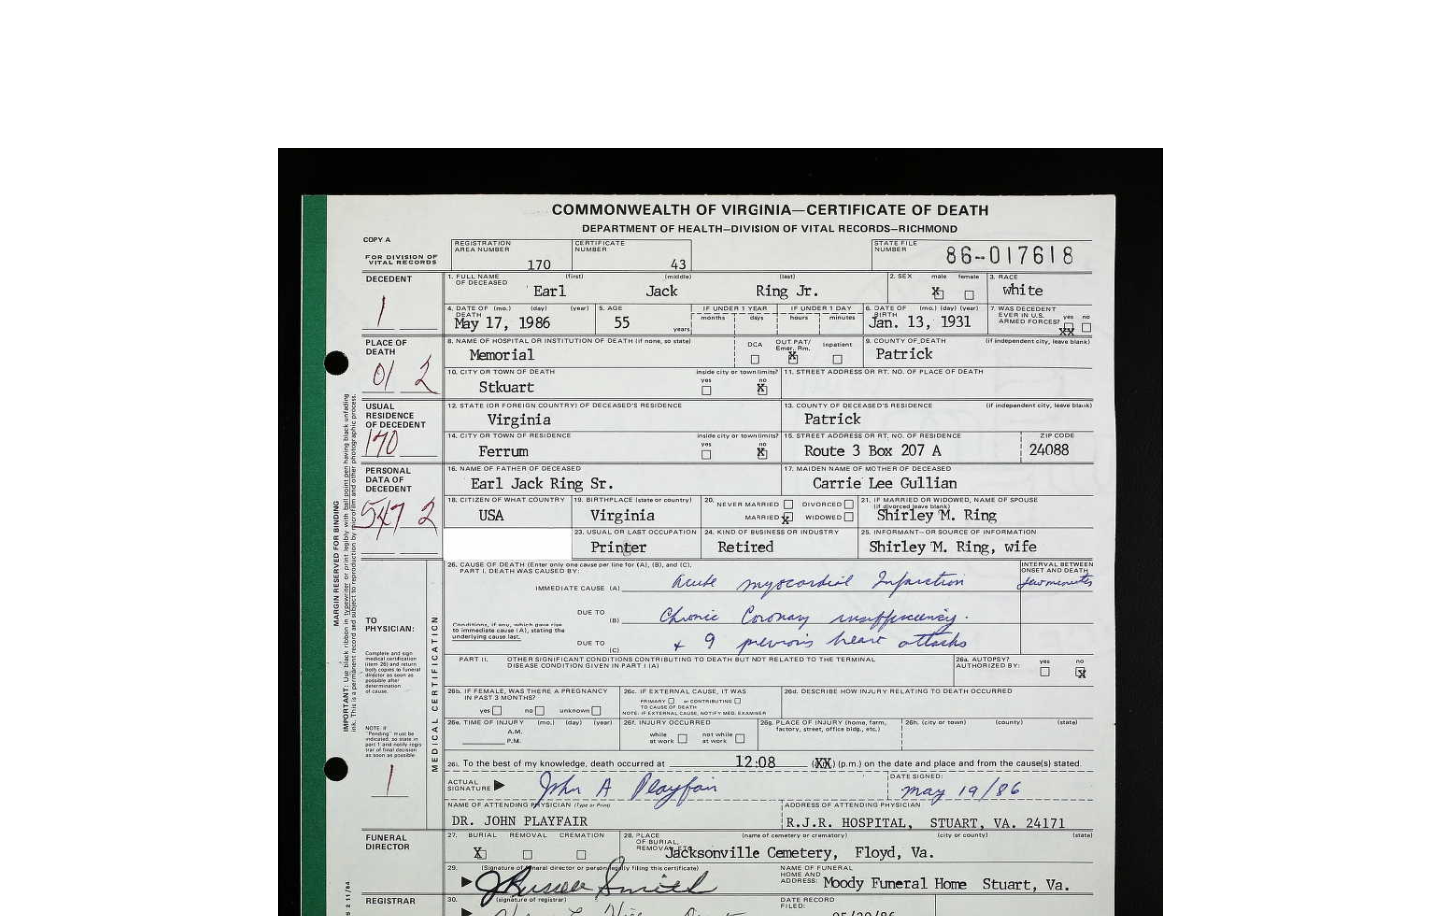 COMMONWEALTH OF VIRGINIA—CERTIFICATE OF DEATH
DEPARTMENT OF HEALTH—DIVISION OF VITAL RECORDS—RICHMOND
COPY A
FOR DIVISION OF VITAL RECORDS
REGISTRATION AREA NUMBER 170
CERTIFICATE NUMBER 43
STATE FILE NUMBER 86-017618
DECEDENT
1
1. FULL NAME OF DECEASED (first) (middle) (last)
Earl Jack Ring Jr.
2. SEX male female
X
3. RACE
white
4. DATE OF DEATH (mo.) (day) (year)
May 17, 1986
5. AGE
55 years
IF UNDER 1 YEAR months days
IF UNDER 1 DAY hours minutes
6. DATE OF BIRTH (mo.) (day) (year)
Jan. 13, 1931
7. WAS DECEDENT EVER IN U.S. ARMED FORCES? yes no
XX
PLACE OF DEATH
01 2
8. NAME OF HOSPITAL OR INSTITUTION OF DEATH (if none, so state)
Memorial
DOA OUT PAT/ Emer. Rm. Inpatient
X
9. COUNTY OF DEATH (if independent city, leave blank)
Patrick
10. CITY OR TOWN OF DEATH
Stkuart
inside city or town limits? yes no
X
11. STREET ADDRESS OR RT. NO. OF PLACE OF DEATH
USUAL RESIDENCE OF DECEDENT
170
12. STATE (OR FOREIGN COUNTRY) OF DECEASED'S RESIDENCE
Virginia
13. COUNTY OF DECEASED'S RESIDENCE (if independent city, leave blank)
Patrick
14. CITY OR TOWN OF RESIDENCE
Ferrum
inside city or town limits? yes no
X
15. STREET ADDRESS OR RT. NO. OF RESIDENCE
Route 3 Box 207 A
ZIP CODE
24088
PERSONAL DATA OF DECEDENT
547 2
16. NAME OF FATHER OF DECEASED
Earl Jack Ring Sr.
17. MAIDEN NAME OF MOTHER OF DECEASED
Carrie Lee Gullian
18. CITIZEN OF WHAT COUNTRY
USA
19. BIRTHPLACE (state or country)
Virginia
20. NEVER MARRIED DIVORCED
MARRIED X WIDOWED
21. IF MARRIED OR WIDOWED, NAME OF SPOUSE
(if divorced leave blank)
Shirley M. Ring
23. USUAL OR LAST OCCUPATION
Printer
24. KIND OF BUSINESS OR INDUSTRY
Retired
25. INFORMANT—OR SOURCE OF INFORMATION
Shirley M. Ring, wife
MARGIN RESERVED FOR BINDING
MEDICAL CERTIFICATION
TO PHYSICIAN:
Complete and sign medical certification (item 26) and return both copies to funeral director as soon as possible after determination of cause.
NOTE: If "Pending" must be indicated, so state in part 1 and notify registrar of final decision as soon as possible
1
26. CAUSE OF DEATH (Enter only one cause per line for (A), (B), and (C).
PART I. DEATH WAS CAUSED BY:
INTERVAL BETWEEN ONSET AND DEATH
IMMEDIATE CAUSE (A) Acute myocardial Infarction few minutes
DUE TO (B) Chronic Coronary insufficiency.
Conditions, if any, which gave rise to immediate cause (A), stating the underlying cause last.
DUE TO (C) + 9 previous heart attacks
PART II. OTHER SIGNIFICANT CONDITIONS CONTRIBUTING TO DEATH BUT NOT RELATED TO THE TERMINAL DISEASE CONDITION GIVEN IN PART I (A)
26a. AUTOPSY? AUTHORIZED BY: yes no
X
26b. IF FEMALE, WAS THERE A PREGNANCY IN PAST 3 MONTHS?
yes no unknown
26c. IF EXTERNAL CAUSE, IT WAS
PRIMARY or CONTRIBUTING
TO CAUSE OF DEATH
NOTE: IF EXTERNAL CAUSE, NOTIFY MED. EXAMINER
26d. DESCRIBE HOW INJURY RELATING TO DEATH OCCURRED
26e. TIME OF INJURY (mo.) (day) (year)
A.M.
P.M.
26f. INJURY OCCURRED
while at work not while at work
26g. PLACE OF INJURY (home, farm, factory, street, office bldg., etc.)
26h. (city or town) (county) (state)
26i. To the best of my knowledge, death occurred at 12:08 (XX) (p.m.) on the date and place and from the cause(s) stated.
ACTUAL SIGNATURE John A Playfair
DATE SIGNED:
May 19/86
NAME OF ATTENDING PHYSICIAN (Type or Print)
DR. JOHN PLAYFAIR
ADDRESS OF ATTENDING PHYSICIAN
R.J.R. HOSPITAL, STUART, VA. 24171
FUNERAL DIRECTOR
27. BURIAL REMOVAL CREMATION
X
28. PLACE OF BURIAL, REMOVAL, ETC. (name of cemetery or crematory) (city or county) (state)
Jacksonville Cemetery, Floyd, Va.
29. (Signature of funeral director or person legally filing this certificate)
J Russell Smith
NAME OF FUNERAL HOME AND ADDRESS:
Moody Funeral Home Stuart, Va.
REGISTRAR
30. (signature of registrar)
DATE RECORD FILED:
05/20/86